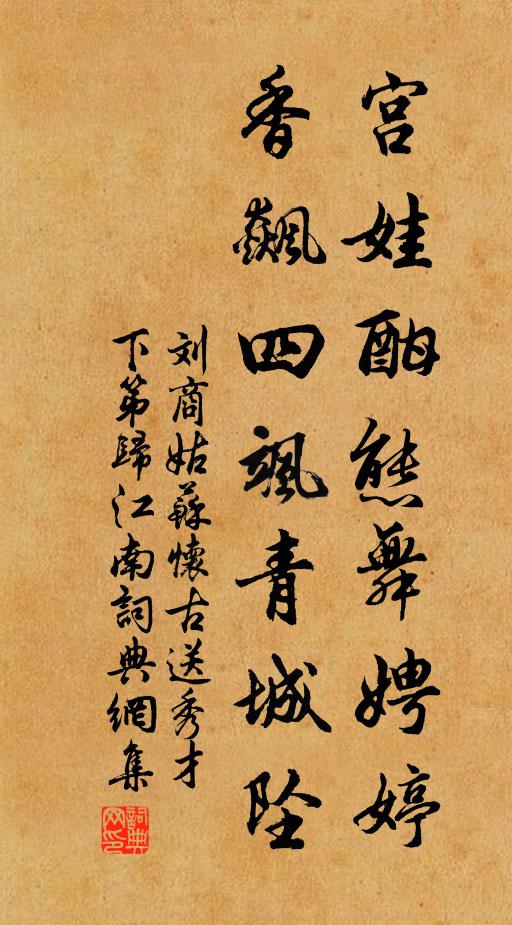 宫娃酣態舞娉婷
香飆四颯青城坠
刘商姑蘇懷古送秀才
下第歸江南詞典網集
詞典
网印